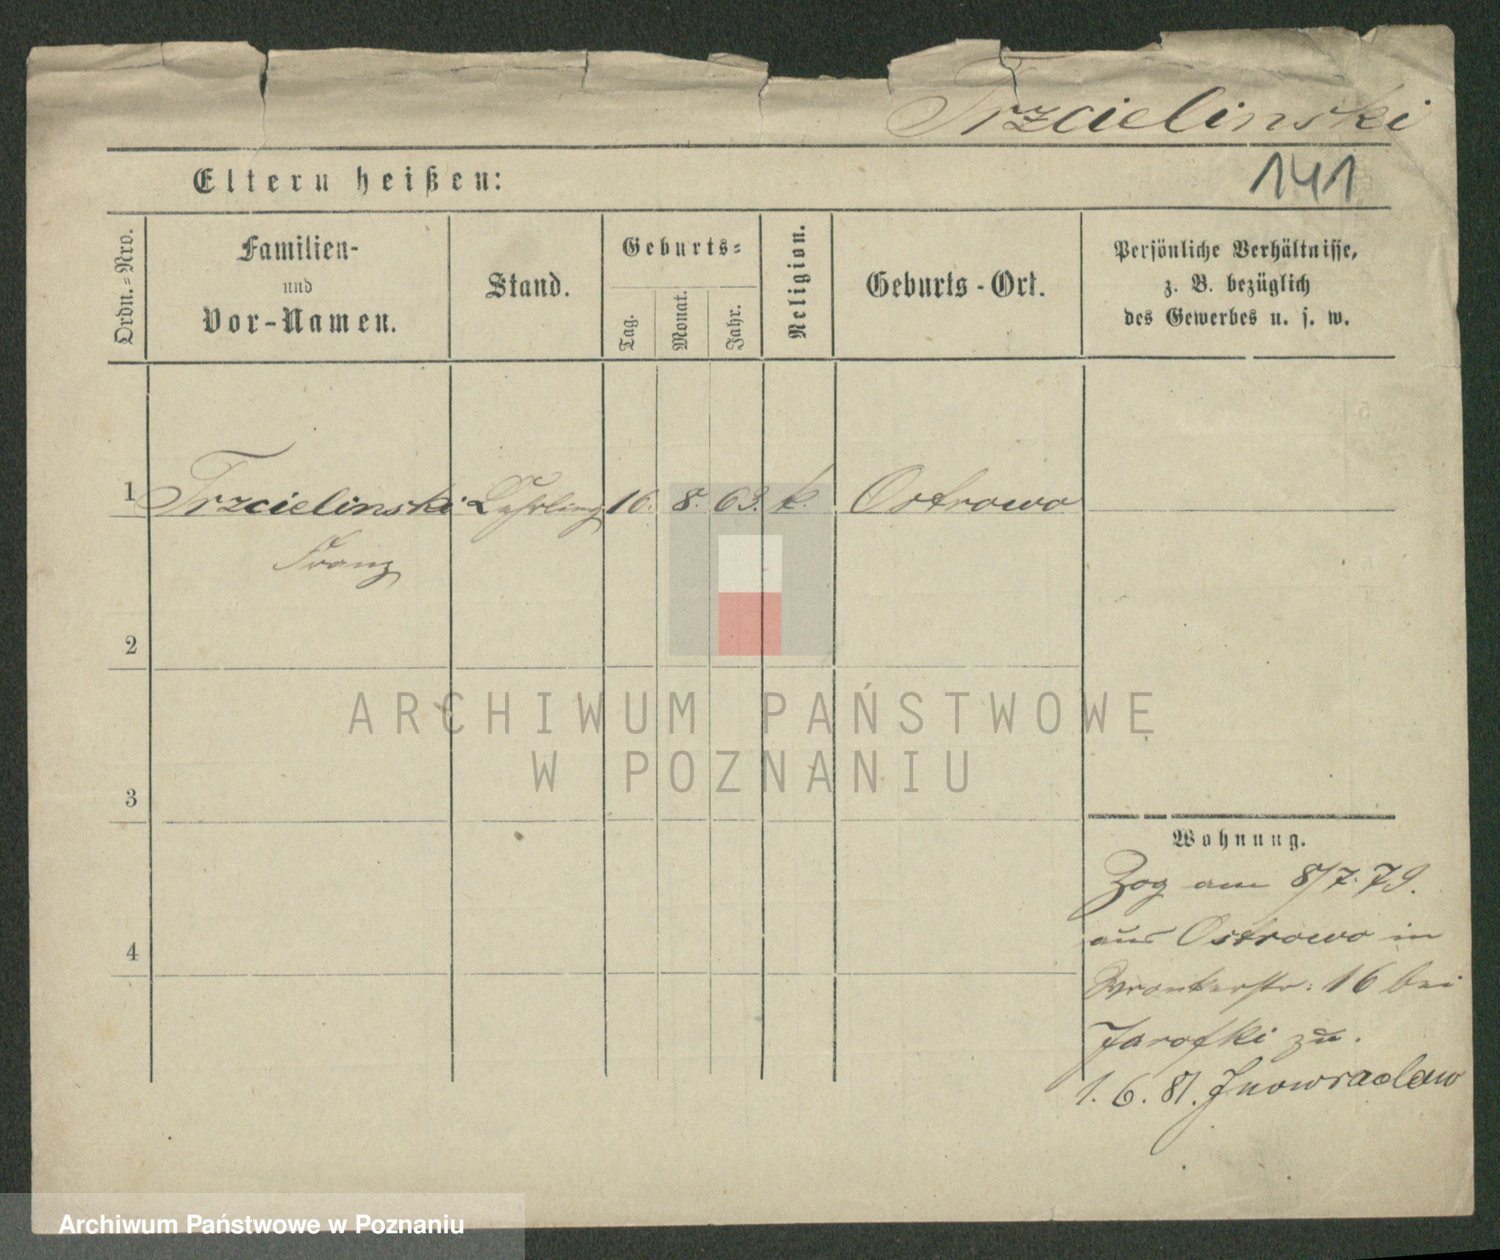 Trzcielinski
141
Eltern heißen:
Ordn.-Nro.
Familien-
und
Vor-Namen.
Stand.
Geburts-
Tag.
Monat.
Jahr.
Religion.
Geburts-Ort.
Persönliche Verhältnisse,
z. B. bezüglich
des Gewerbes u. s. w.
1 Trzcielinski Lehrling 16. 8. 63. k. Ostrowo
Franz
2
3
4
Wohnung.
Zog am 8/7. 79.
aus Ostrowo in
Wronkerstr: 16 bei
Jarofki zu.
1. 6. 81. Inowraclaw
ARCHIWUM PAŃSTWOWE
W POZNANIU
Archiwum Państwowe w Poznaniu